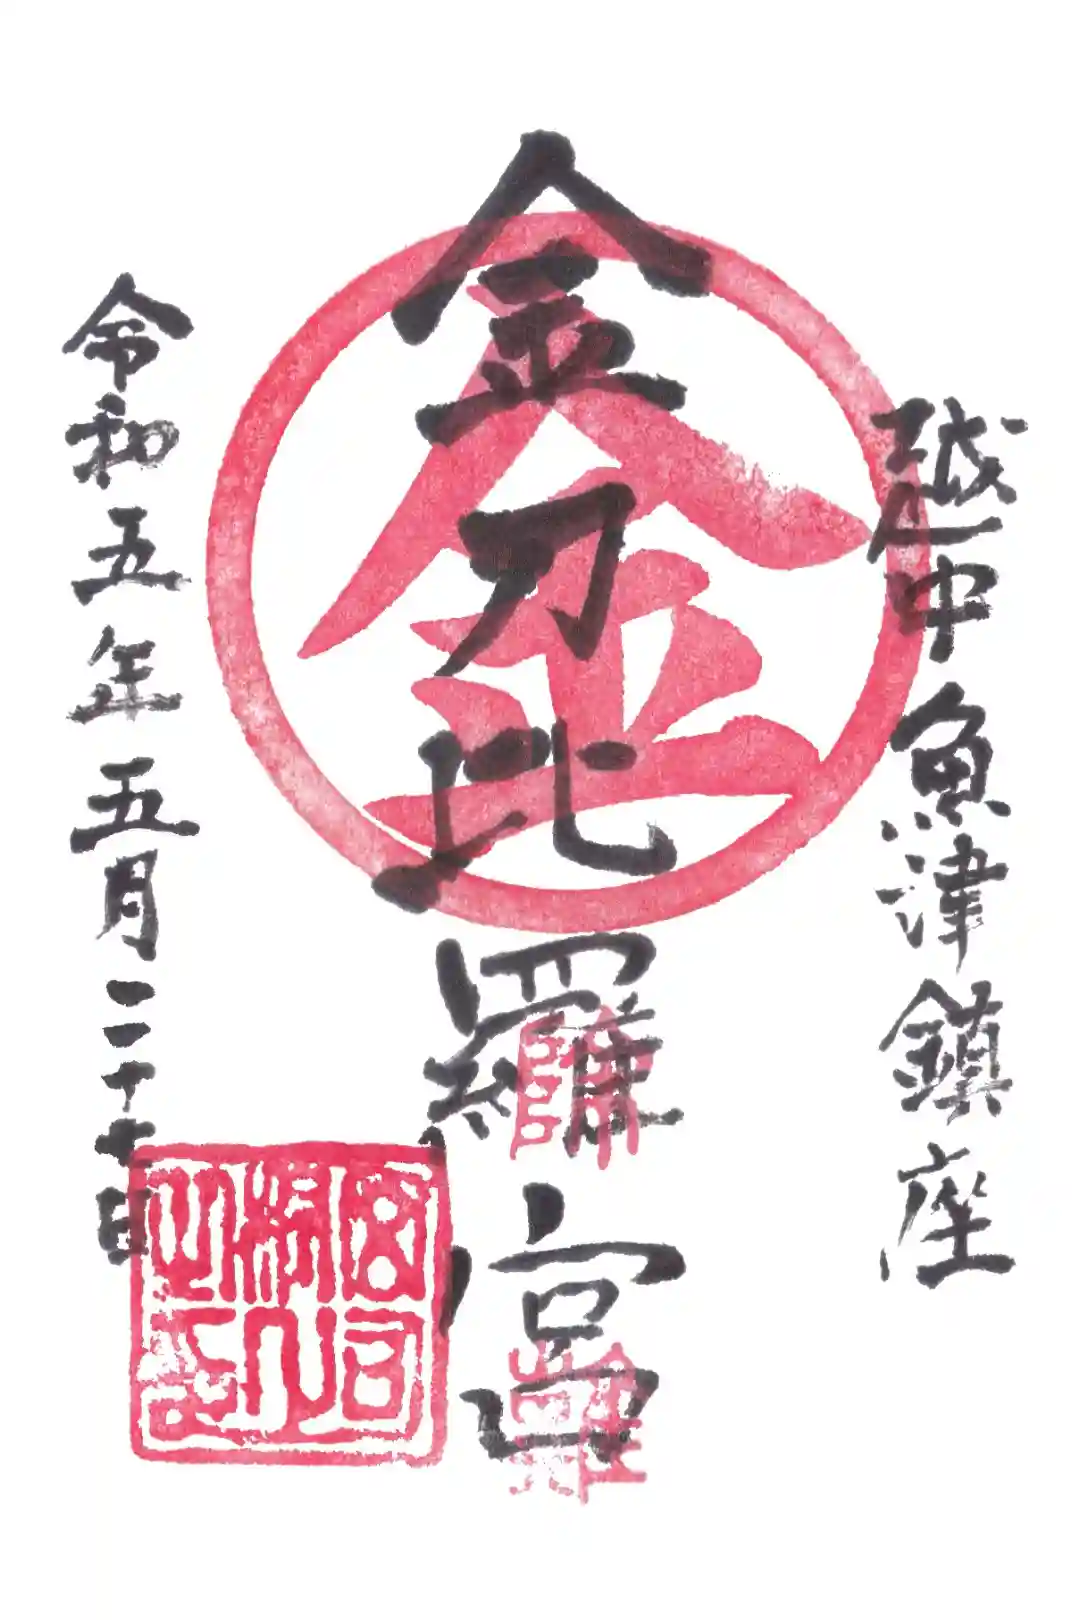 越中魚津鎮座
金
金刀比羅宮
令和五年五月二十七日